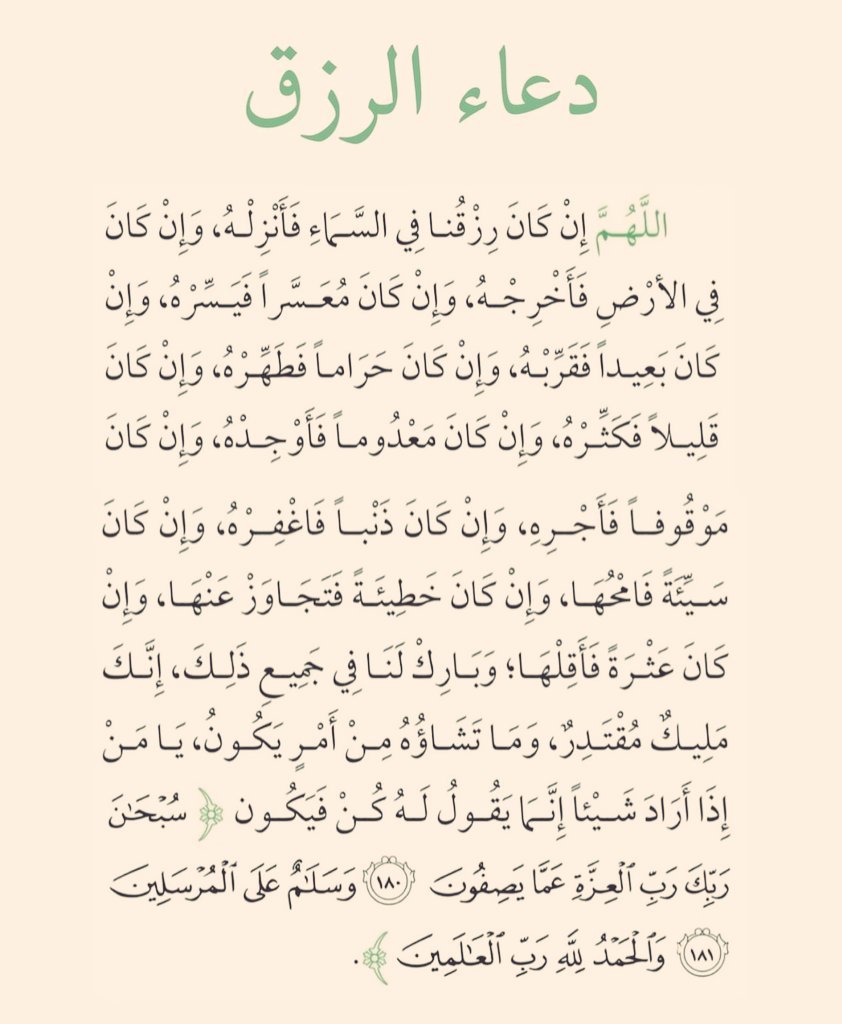 دعاء الرزق
اللَّهُمَّ إِنْ كَانَ رِزْقُنا فِي السَّمَاءِ فَأَنْزِلْهُ، وَإِنْ كَانَ
فِي الأرْضِ فَأَخْرِجْهُ، وَإِنْ كَانَ مُعَسَّراً فَيَسِّرْهُ، وَإِنْ
كَانَ بَعِيداً فَقَرِّبْهُ، وَإِنْ كَانَ حَرَاماً فَطَهِّرْهُ، وَإِنْ كَانَ
قَلِيلاً فَكَثِّرْهُ، وَإِنْ كَانَ مَعْدُوماً فَأَوْجِدْهُ، وَإِنْ كَانَ
مَوْقُوفاً فَأَجْرِهِ، وَإِنْ كَانَ ذَنْباً فَاغْفِرْهُ، وَإِنْ كَانَ
سَيِّئَةً فَامْحُهَا، وَإِنْ كَانَ خَطِيئَةً فَتَجَاوَزْ عَنْهَا، وَإِنْ
كَانَ عَثْرَةً فَأَقِلْهَا؛ وَبَارِكْ لَنَا فِي جَمِيعِ ذَلِكَ، إِنَّكَ
مَلِيكٌ مُقْتَدِرٌ، وَمَا تَشَاؤُهُ مِنْ أَمْرٍ يَكُونُ، يَا مَنْ
إِذَا أَرَادَ شَيْئاً إِنَّمَا يَقُولُ لَهُ كُنْ فَيَكُون ﴿ سُبْحَٰنَ
رَبِّكَ رَبِّ ٱلْعِزَّةِ عَمَّا يَصِفُونَ ١٨٠ وَسَلَٰمٌ عَلَى ٱلْمُرْسَلِينَ
١٨١ وَٱلْحَمْدُ لِلَّهِ رَبِّ ٱلْعَٰلَمِينَ ﴾.